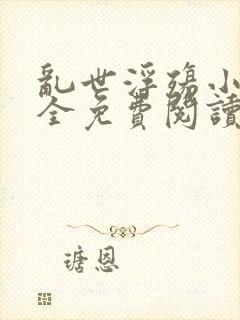 亂世浮殤小
全免費閱讀
瑭恩